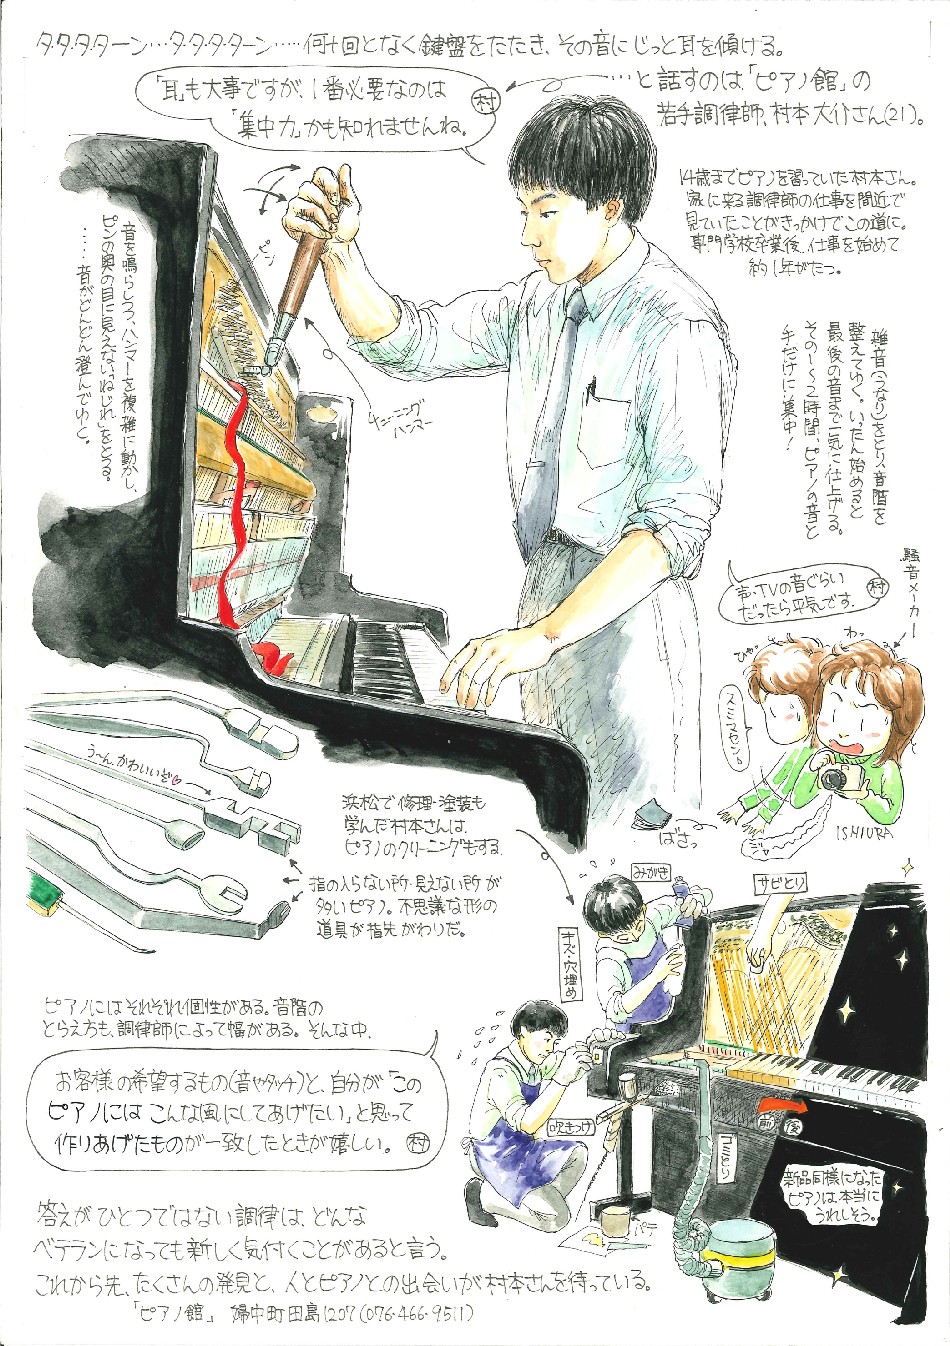 タ・タ・タ・ターン…タ・タ・タ・ターン……何十回となく鍵盤をたたき、その音にじっと耳を傾ける。
「耳も大事ですが、1番必要なのは
「集中力」かも知れませんね。
村
…と話すのは、「ピアノ館」の
若手調律師、村本大介さん(21)。
14歳までピアノを習っていた村本さん。
家に来る調律師の仕事を間近で
見ていたことがきっかけでこの道に。
専門学校卒業後、仕事を始めて
約1年がたつ。
音を鳴らしつつ、ハンマーを複雑に動かし、
ピンの奥の目に見えない“ねじれ”をとる。
……音がどんどん澄んでゆく。
ピン
チューニング
ハンマー
雑音(うなり)をとり、音階を
整えてゆく。いったん始めると
最後の音まで一気に仕上げる。
その1〜2時間、ピアノの音と
手だけに集中!
声・TVの音ぐらい
だったら平気です。
村
騒音メーカー
わっ
ひゃ〜
スミマセン。
ISHIURA
ばさっ
う〜ん、かわいいぞ♡
浜松で修理・塗装も
学んだ村本さんは、
ピアノのクリーニングもする。
指の入らない所・見えない所が
多いピアノ。不思議な形の
道具が指先がわりだ。
みがき
サビとり
キズ・穴埋め
吹きつけ
ゴミとり
パテ
前
後
新品同様になった
ピアノは、本当に
うれしそう。
ピアノにはそれぞれ個性がある。音階の
とらえ方も、調律師によって幅がある。そんな中、
お客様の希望するもの(音やタッチ)と、自分が「この
ピアノには こんな風にしてあげたい」と思って
作りあげたものが一致したときが嬉しい。
村
答えがひとつではない調律は、どんな
ベテランになっても新しく気付くことがあると言う。
これから先、たくさんの発見と、人とピアノとの出会いが村本さんを待っている。
「ピアノ館」 婦中町田島1207(076-466-9511)